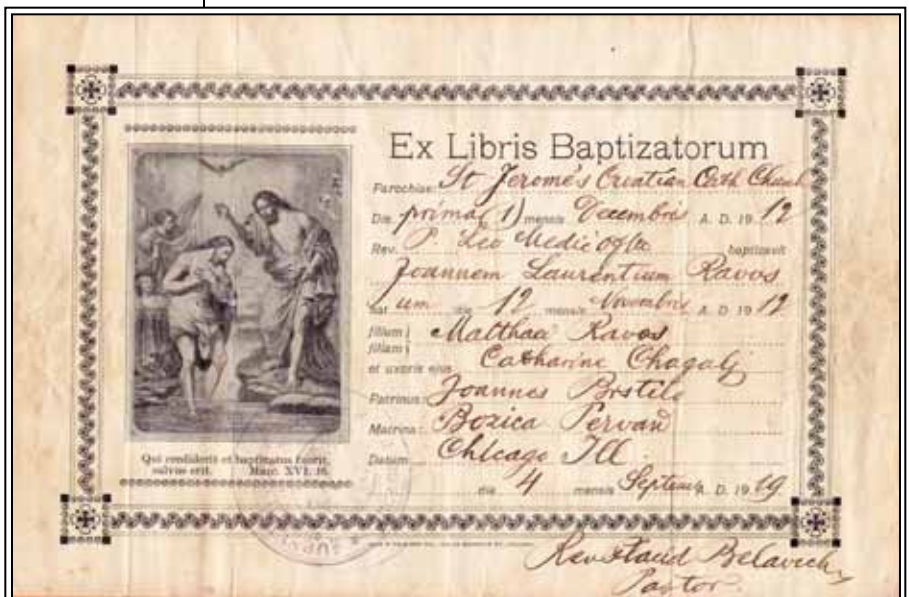 Ex Libris Baptizatorum
Parochiae St Jerome's Croatian Cath Church
Die prima (1) mensis Decembris A. D. 19 12
Rev. P. Leo Medic baptizavit
Joannem Laurentium Ravos
nat um die 12 mensis Novembris A. D. 19 12
filium Matthaa Ravos
filiam
et uxoris ejus Catharine Chagalj
Patrinus: Joannes Brstilo
Matrina: Bozica Pervan
Datum Chicago Ill.
die 4 mensis Septem A. D. 19 19
Qui crediderit et baptizatus fuerit,
salvus erit. Marc. XVI. 16.
Rev Belavich
Pastor